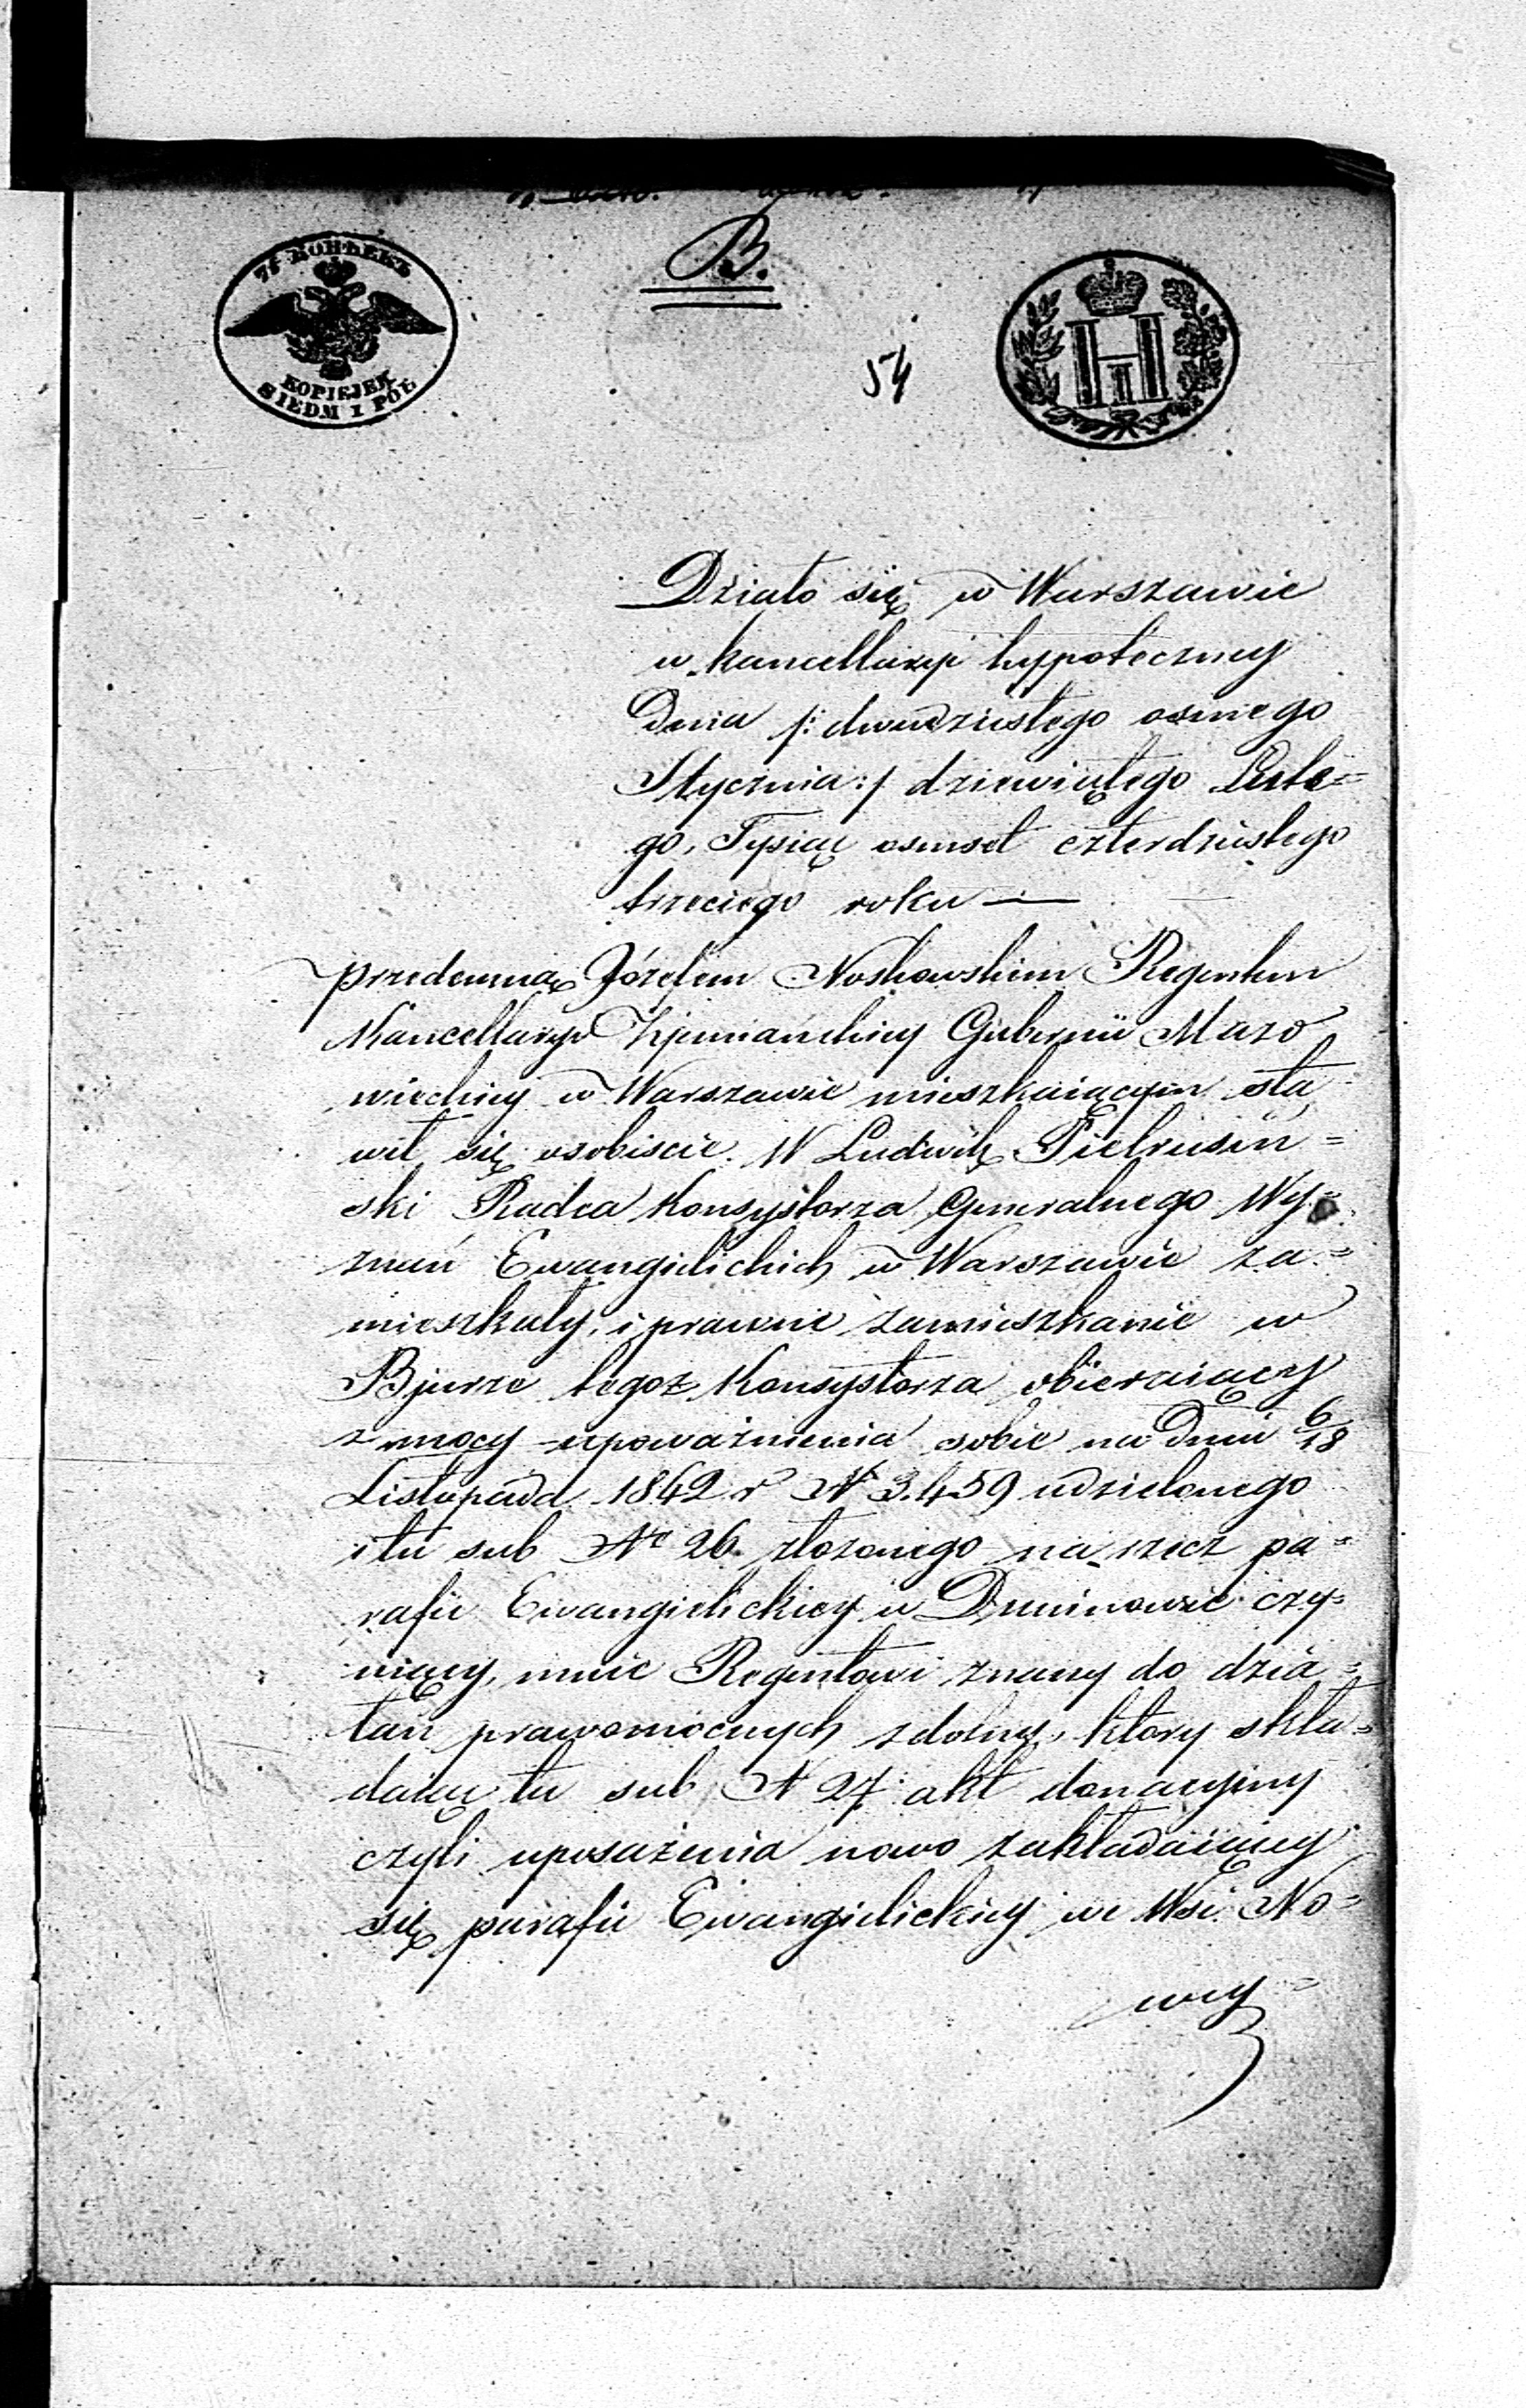 B.
7½ КОПѢЕКЪ
KOPIEJEK
SIEDM I PÓŁ
54
Działo się w Warszawie
w kancellaryi hyppoteczney
Dnia /: dwudziestego osmego
Stycznia :/ dziewiątego Lute=
go, Tysiąc osmset czterdziestego
trzeciego roku —
przedemną Józefem Noskowskim Regentem
Kancellaryi Ziemiańskiey Gubernii Mazo
wieckiey w Warszawie mieszkaiącym sta
wił się osobiscie. W Ludwik Pietrusiń=
ski Radca Konsystorza Generalnego Wy=
znań Ewangielickich w Warszawie za=
mieszkały, i prawne zamieszkanie w
Bjurze tegoż Konsystorza obieraiący
z mocy upoważnienia sobie na Dniu 6/18
Listopada 1842 r N 3.459 udzielonego
i tu sub No 26. złożonego na rzecz pa=
rafii Ewangielickiey w czy=
niący, mnie Regentowi znany do dzia=
łań prawomocnych zdolny, ktory skła=
daiąc tu sub N 27. akt donacyiny
czyli uposażenia nowo zakładaiącey
się parafii Ewangielickiey we Wsi No=
wey